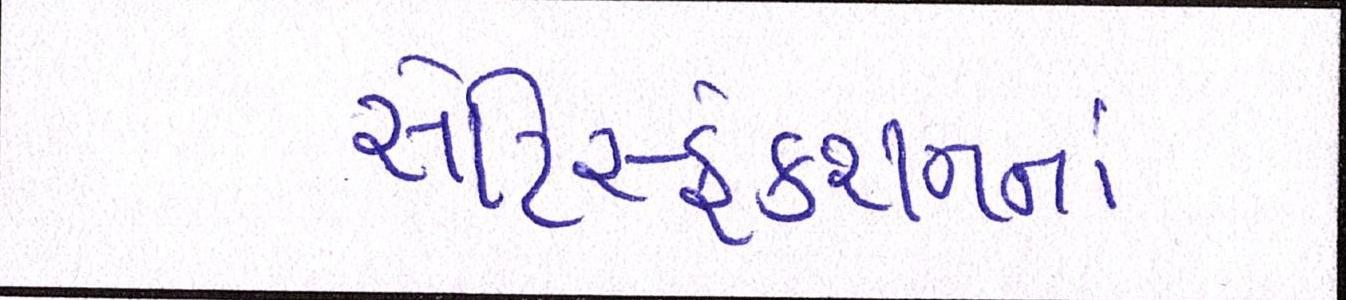 સેટિસ્ફેકશનનાં